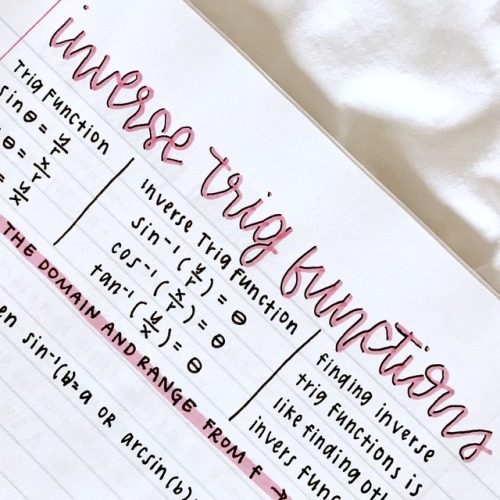 inverse trig functions
Trig Function
sin θ = y/r
θ = x/r
= y/x
inverse Trig Function
sin⁻¹ (y/r) = θ
cos⁻¹ (x/r) = θ
tan⁻¹ (y/x) = θ
finding inverse
trig functions is
like finding
THE DOMAIN AND RANGE FROM f →
sin⁻¹(b)=a OR arcsin(b)